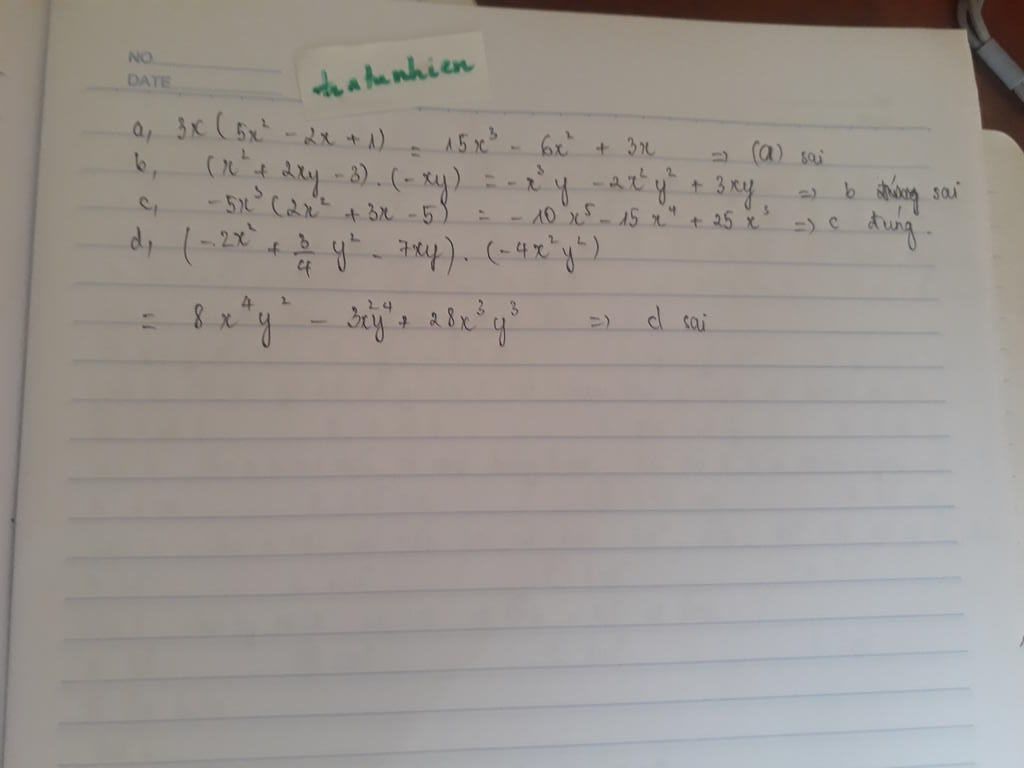 NO
DATE
hatunhien
a, 3x(5x² - 2x + 1) = 15x³ - 6x² + 3x => (a) sai
b, (x² + 2xy - 3).(-xy) = -x³y - 2x²y² + 3xy => b sai
c, -5x³(2x² + 3x - 5) = -10x⁵ - 15x⁴ + 25x³ => c đúng.
d, (-2x² + 3/4 y² - 7xy).(-4x²y²)
= 8x⁴y² - 3x²y⁴ + 28x³y³ => d sai